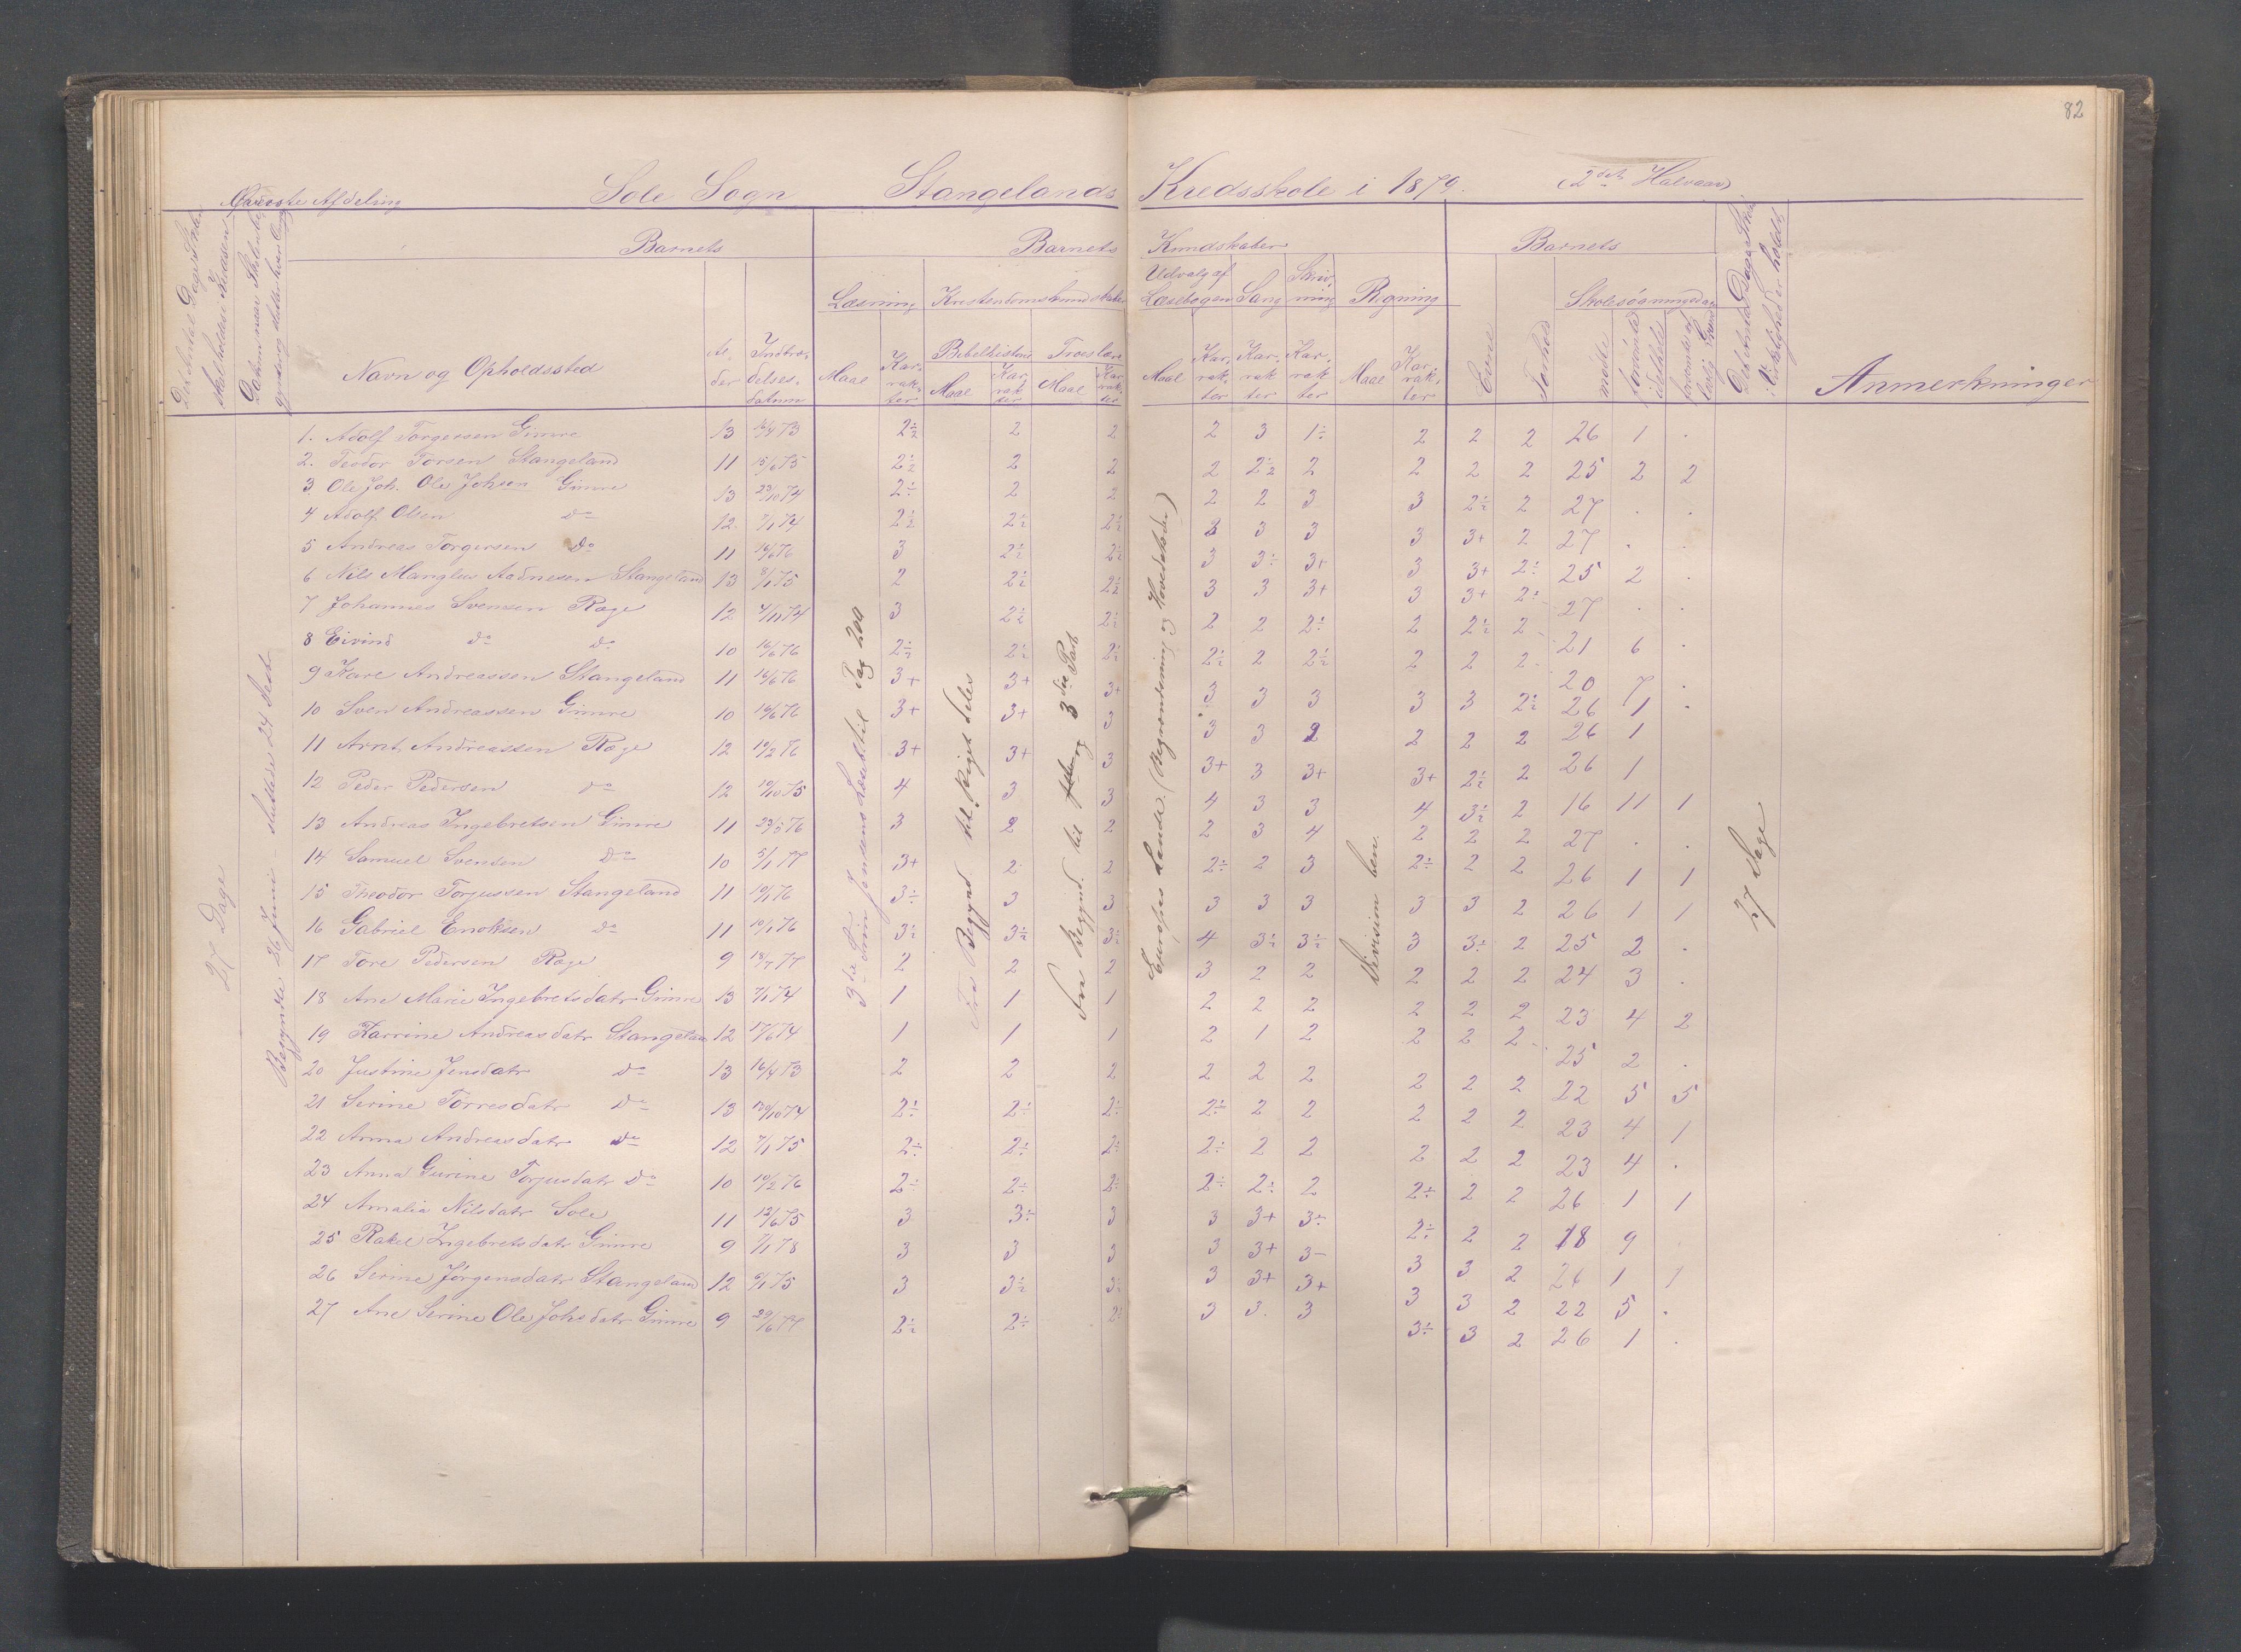 82
Øverste Afdeling Sole Sogn Stangelands Kredsskole i 1879. (2det Halvaar)
Barnets Barnets Kundskaber Barnets
Læsning Kristendomskundskaber Udvalg af Læsebogen Sang Skrivning Regning Skolesøgningsdage
Navn og Opholdssted Alder Indtrædelsesdatum Maal Karakter Bibelhistorie Maal Karakter Troeslære Maal Karakter Maal Karakter Karakter Karakter Maal Karakter Evne Forhold mødte forsømte Anmerkninger
27 Dage
Begyndte 26 Juni – sluttede 24 Sept
3die Trin Jensens Læsebog til Pag 200
Europas Lande. (Begrændsning og Hovedstæder)
Division ben.
27 Dage
1. Adolf Torgersen Gimre 13 16/4 73 2÷ 2 2 2 3 1÷ 2 2 2 26 1 .
2. Teodor Torsen Stangeland 11 15/6 75 2÷ 2 2 2 2÷ 2 2 2 2 25 2 2
3 Ole Joh. Ole Johsen Gimre 13 29/10 74 2÷ 2 2 2 2 3 3 2÷ 2 27 . .
4 Adolf Olsen do 12 7/1 74 2÷ 2÷ 2÷ 3 3 3 3 3+ 2 27 . .
5 Andreas Torgersen do 11 16/6 76 3 2÷ 2÷ 3 3÷ 3+ 3 3+ 2÷ 25 2 .
6 Nils Manglus Aadnesen Stangeland 13 8/1 75 2 2÷ 2÷ 3 3 3+ 3 3+ 2÷ 27 . .
7 Johannes Svensen Røge 12 4/11 74 3 2÷ 2÷ 2 2 2÷ 2 2÷ 2 21 6 .
8 Eivind do do 10 16/6 76 2÷ 2÷ 2÷ 2÷ 2 2÷ 2 2 2 20 7 .
9 Kare Andreassen Stangeland 11 16/6 76 3+ 3+ 3+ 3 3 3 3 3 2÷ 26 1 .
10 Sven Andreassen Gimre 10 16/6 76 3+ 3+ 3 3 3 2 2 2 2 26 1
11 Arnt Andreassen Røge 12 10/2 76 3+ 3+ 3 3+ 3 3+ 3+ 2÷ 2 26 1
12 Peder Pedersen do 12 19/10 75 4 3 3 4 3 3 4 3÷ 2 16 11 1
13 Andreas Ingebretsen Gimre 11 29/5 76 3 2 2 2 3 4 2 2 2 27 . .
14 Samuel Svensen do 10 5/1 77 3+ 2 2 2÷ 2 3 2÷ 2 2 26 1 1
15 Theodor Torjussen Stangeland 11 10/1 76 3÷ 3 3 3 3 3 3 3 2 26 1 1
16 Gabriel Enoksen do 11 10/1 76 3÷ 3÷ 3÷ 4 3÷ 3÷ 3 3÷ 2 25 2 .
17 Tore Pedersen Røge 9 18/7 77 2 2 2 3 2 2 2 2 2 24 3 .
18 Ane Marie Ingebretsdatr Gimre 13 7/1 74 1 1 1 2 2 2 2 2 2 23 4 2
19 Karrine Andreasdatr Stangeland 12 17/6 74 1 1 1 2 1 2 2 2 2 25 2 .
20 Justine Jensdatr do 13 16/4 73 2 2 2 2 2 2 2 2 2 22 5 5
21 Serine Torresdatr do 13 10/10 74 2÷ 2÷ 2÷ 2÷ 2 2 2 2 2 23 4 1
22 Anna Andreasdatr do 12 7/1 75 2÷ 2÷ 2÷ 2÷ 2 2 2 2 2 23 4 .
23 Anna Gurine Torjusdatr do 10 10/2 76 2÷ 2÷ 2÷ 2÷ 2÷ 2 2÷ 2 2 26 1 1
24 Amalia Nilsdatr Sole 11 12/6 75 3 3÷ 3 3 3+ 3÷ 2÷ 2 2 18 9
25 Rakel Ingebretsdatr Gimre 9 7/1 78 3 3 3 3 3+ 3– 3 3 2 26 1 1
26 Serine Jørgensdatr Stangeland 12 9/1 75 3 3÷ 3÷ 3 3+ 3+ 3 3 2 22 5 .
27 Ane Serine Ole Johsdatr Gimre 9 29/6 77 2÷ 2÷ 2÷ 3 3. 3 3÷ 3 2 26 1 .